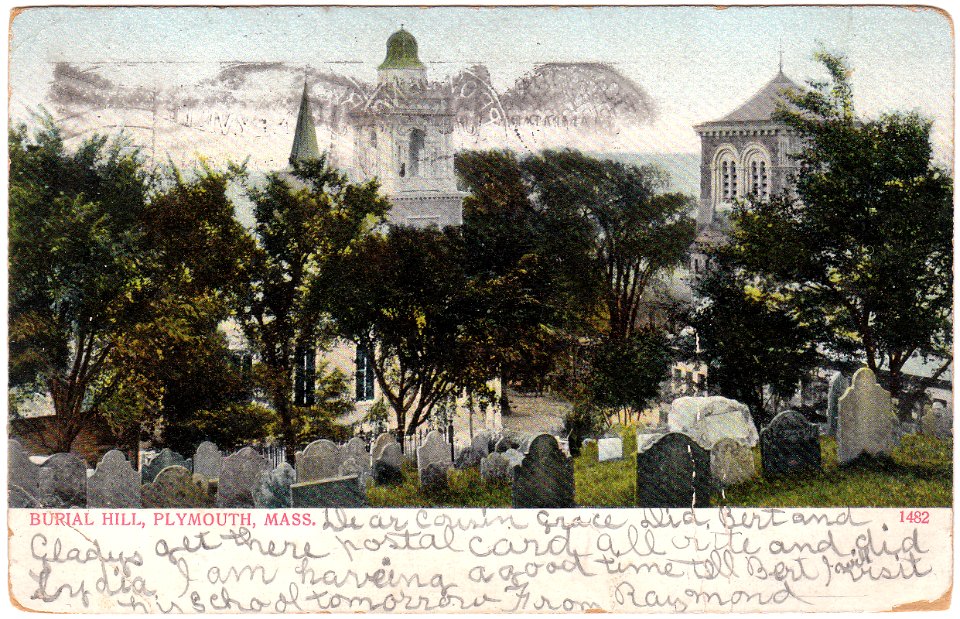 BURIAL HILL, PLYMOUTH, MASS. Dear Cousin Grace Did Bert and 1482
Gladys get there postal card all rite and did
Lydia I am haveing a good time tell Bert I will visit
his school tomorrow From Raymond